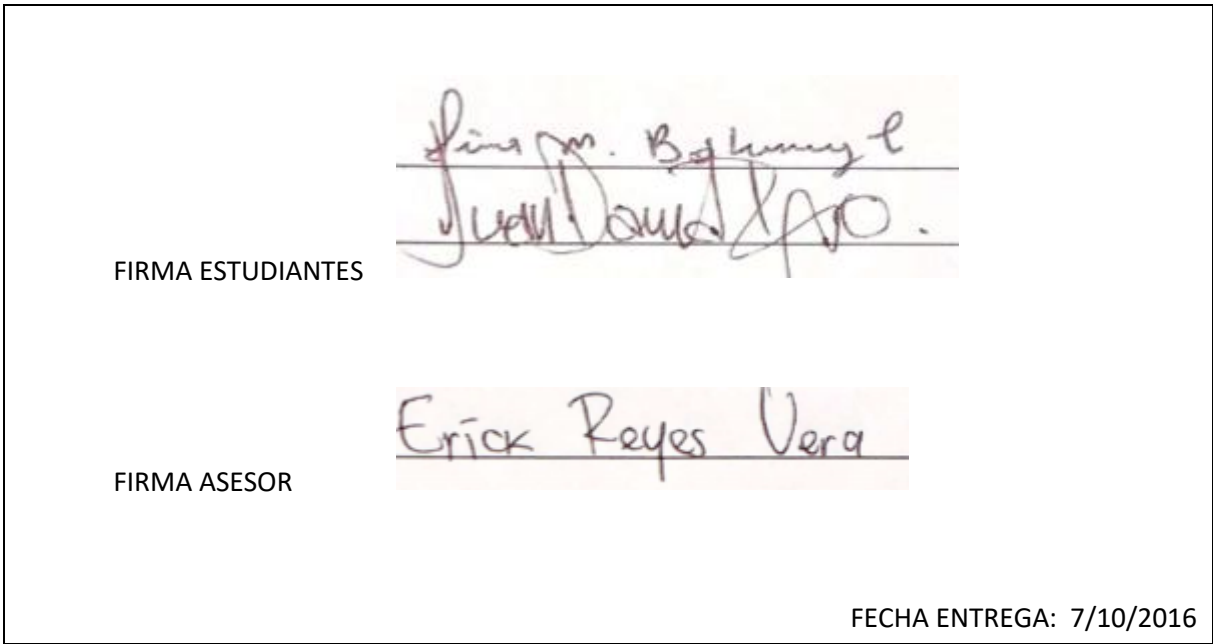 m. B
Juan David
FIRMA ESTUDIANTES
Erick Reyes Vera
FIRMA ASESOR
FECHA ENTREGA: 7/10/2016